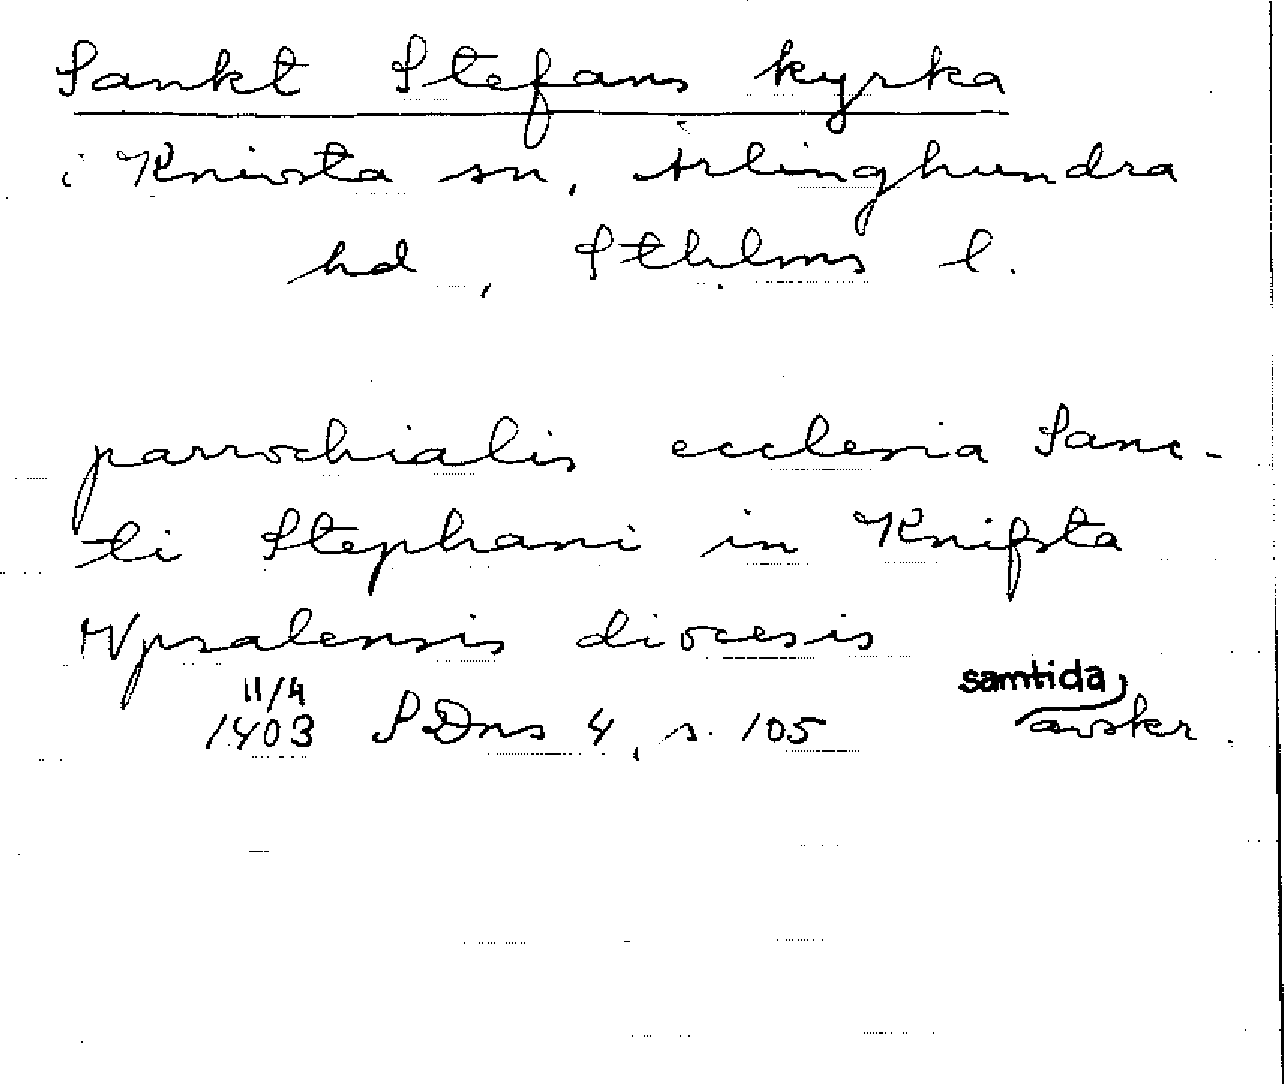 Sankt Stefans kyrka
i Knivsta sn, Ärlinghundra
hd, Sthlms l.
parrochialis ecclesia Sanc-
ti Stephani in Knifsta
Wpsalensis diocesis
11/4 samtida
1403 SDns 4, s. 105 avskr.